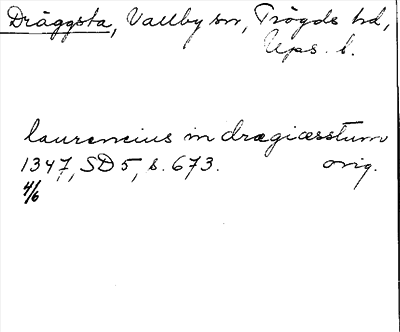 Dräggsta, Vallby sn, Trögds hd,
Upps. l.
laurencius in drægiæsstum
1347, SD 5, s. 673. orig.
4/6